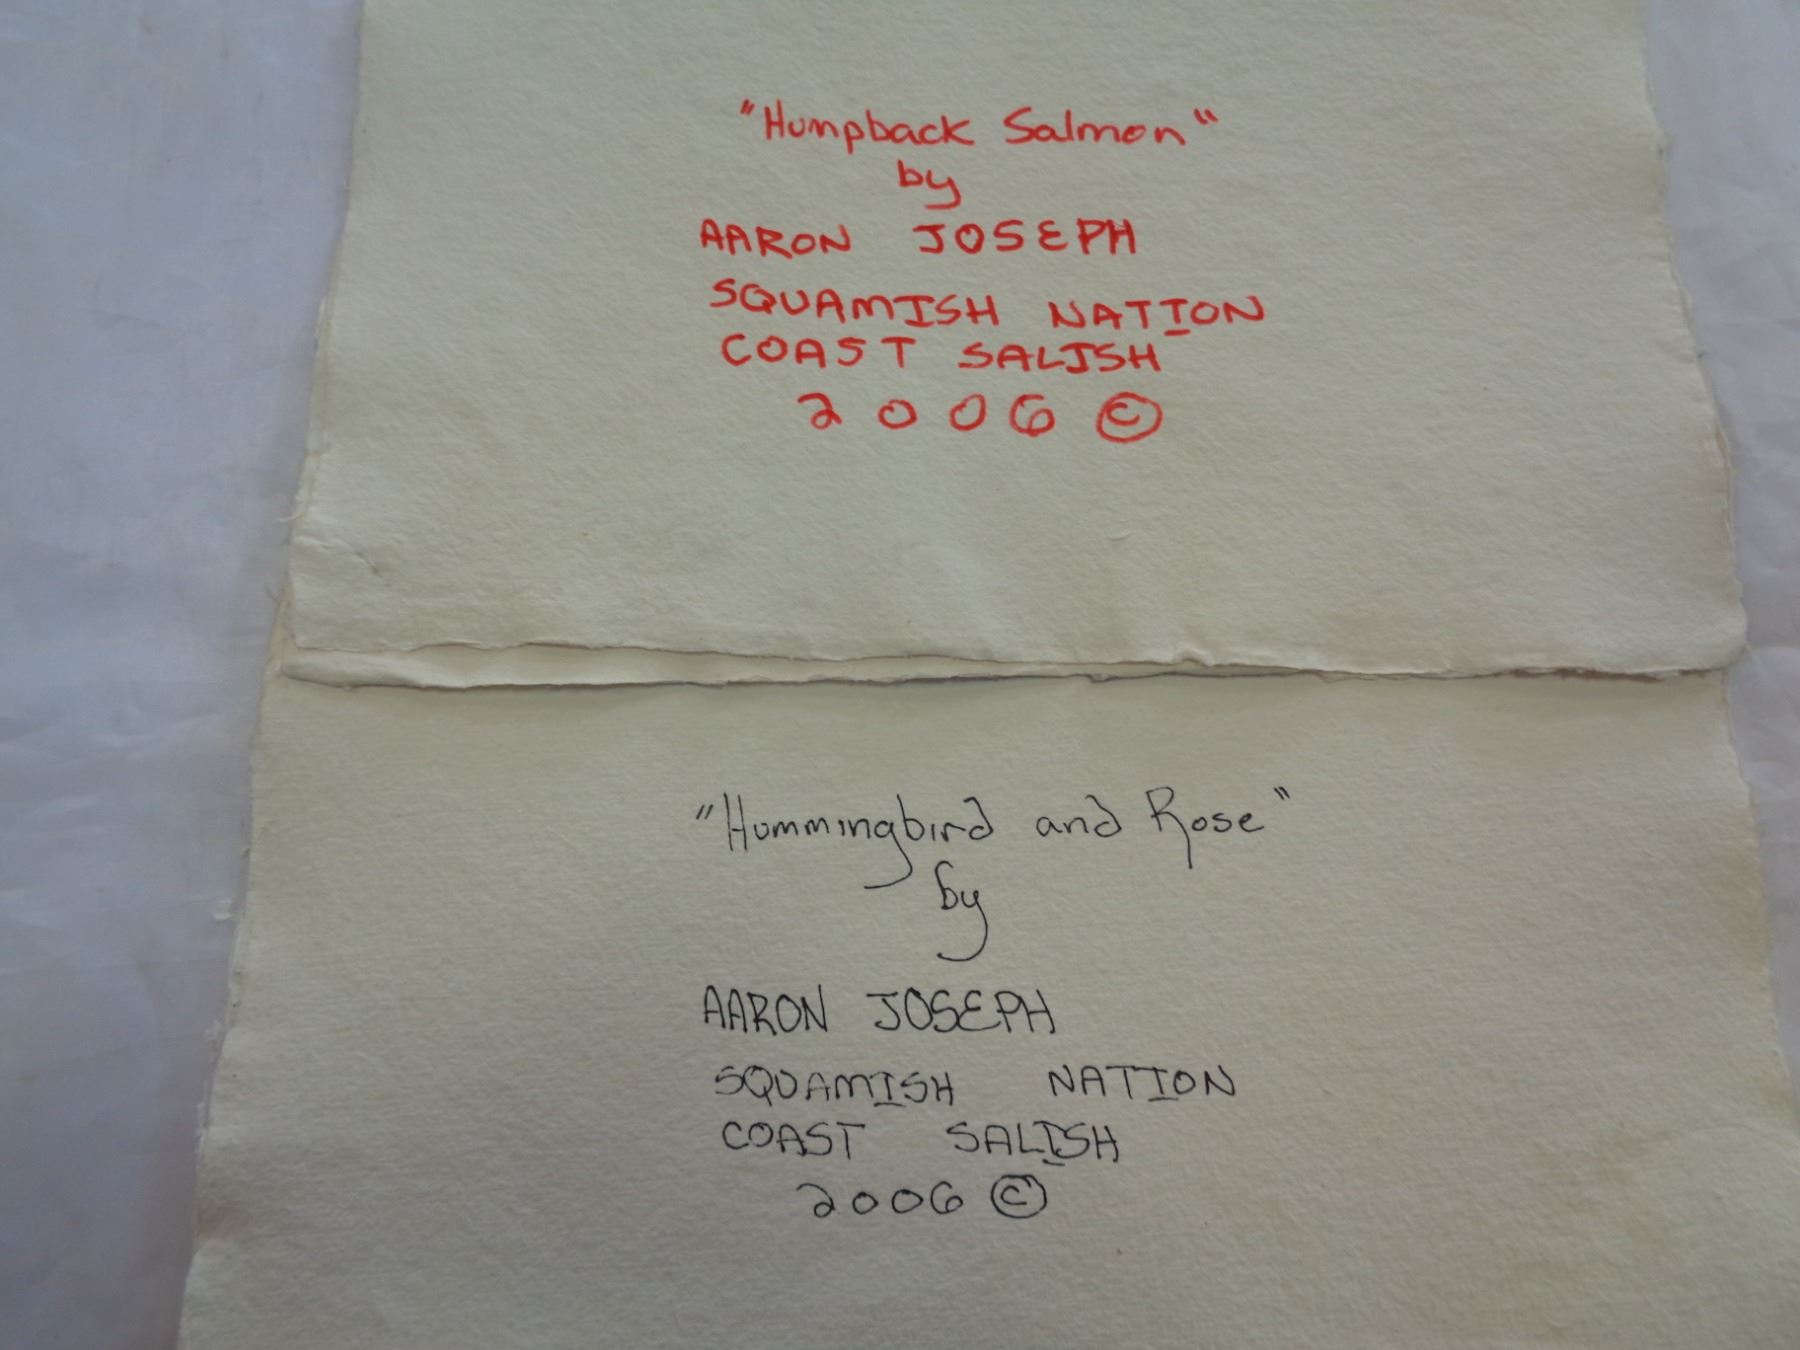 "Humpback Salmon"
by
AARON JOSEPH
SQUAMISH NATION
COAST SALISH
2006 ©
"Hummingbird and Rose"
by
AARON JOSEPH
SQUAMISH NATION
COAST SALISH
2006 ©